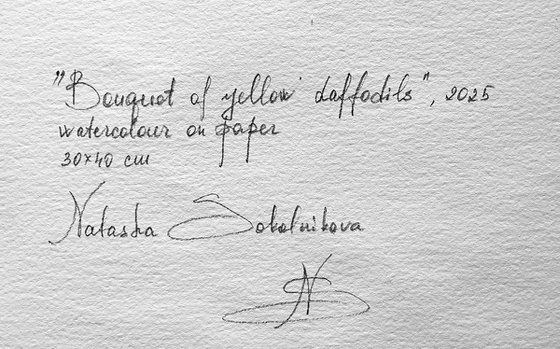 "Bouquet of yellow daffodils", 2025
watercolour on paper
30×40 cm
Natasha Sokolnikova
NS